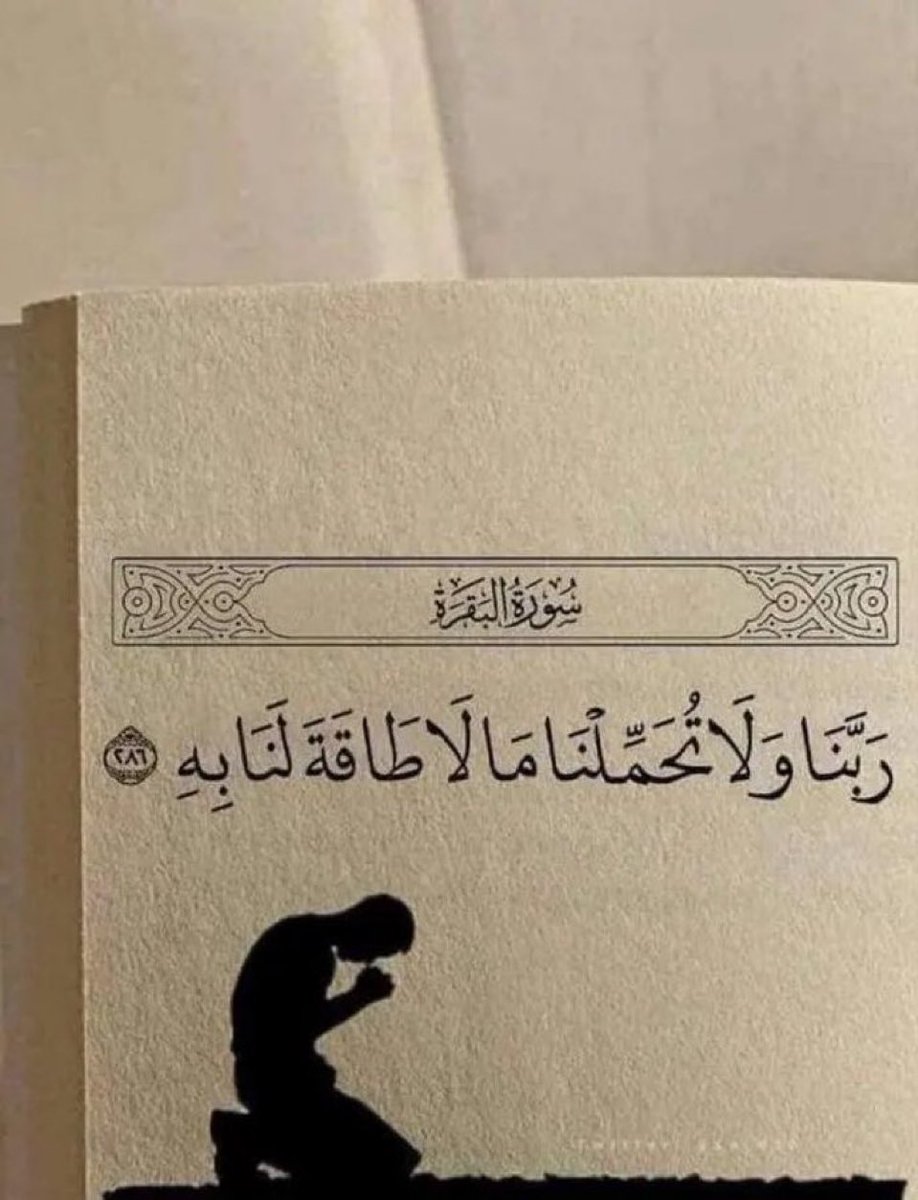 سُورَةُ البَقَرَةِ
رَبَّنَا وَلَا تُحَمِّلْنَا مَا لَا طَاقَةَ لَنَا بِهِ ٢٨٦